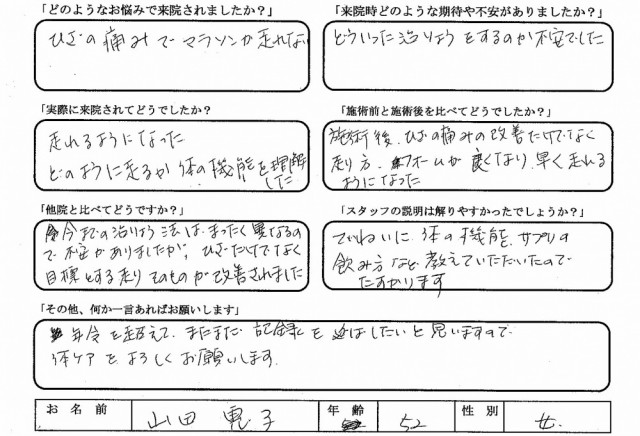 「どのようなお悩みで来院されましたか？」
ひざの痛みでマラソンが走れない
「来院時どのような期待や不安がありましたか？」
どういった治りょうをするのか不安でした
「実際に来院されてどうでしたか？
走れるようになった
どのように走るか体の機能を理解
した
「施術前と施術後を比べてどうでしたか？」
施術後、ひざの痛みの改善だけでなく
走り方、フォームが良くなり、早く走れる
ようになった
「他院と比べてどうですか？」
今までの治りょう法は、まったく異なるの
で不安がありましたが、ひざだけでなく
目標とする走りそのものが改善されました
「スタッフの説明は解りやすかったでしょうか？」
ていねいに体の機能、サプリの
飲み方など教えていただいたので
たすかります
「その他、何か一言あればお願いします」
年令を超えて、まだまだ記録を延ばしたいと思いますので
体ケアをよろしくお願いします。
お名前 山田 子 年齢 52 性別 女